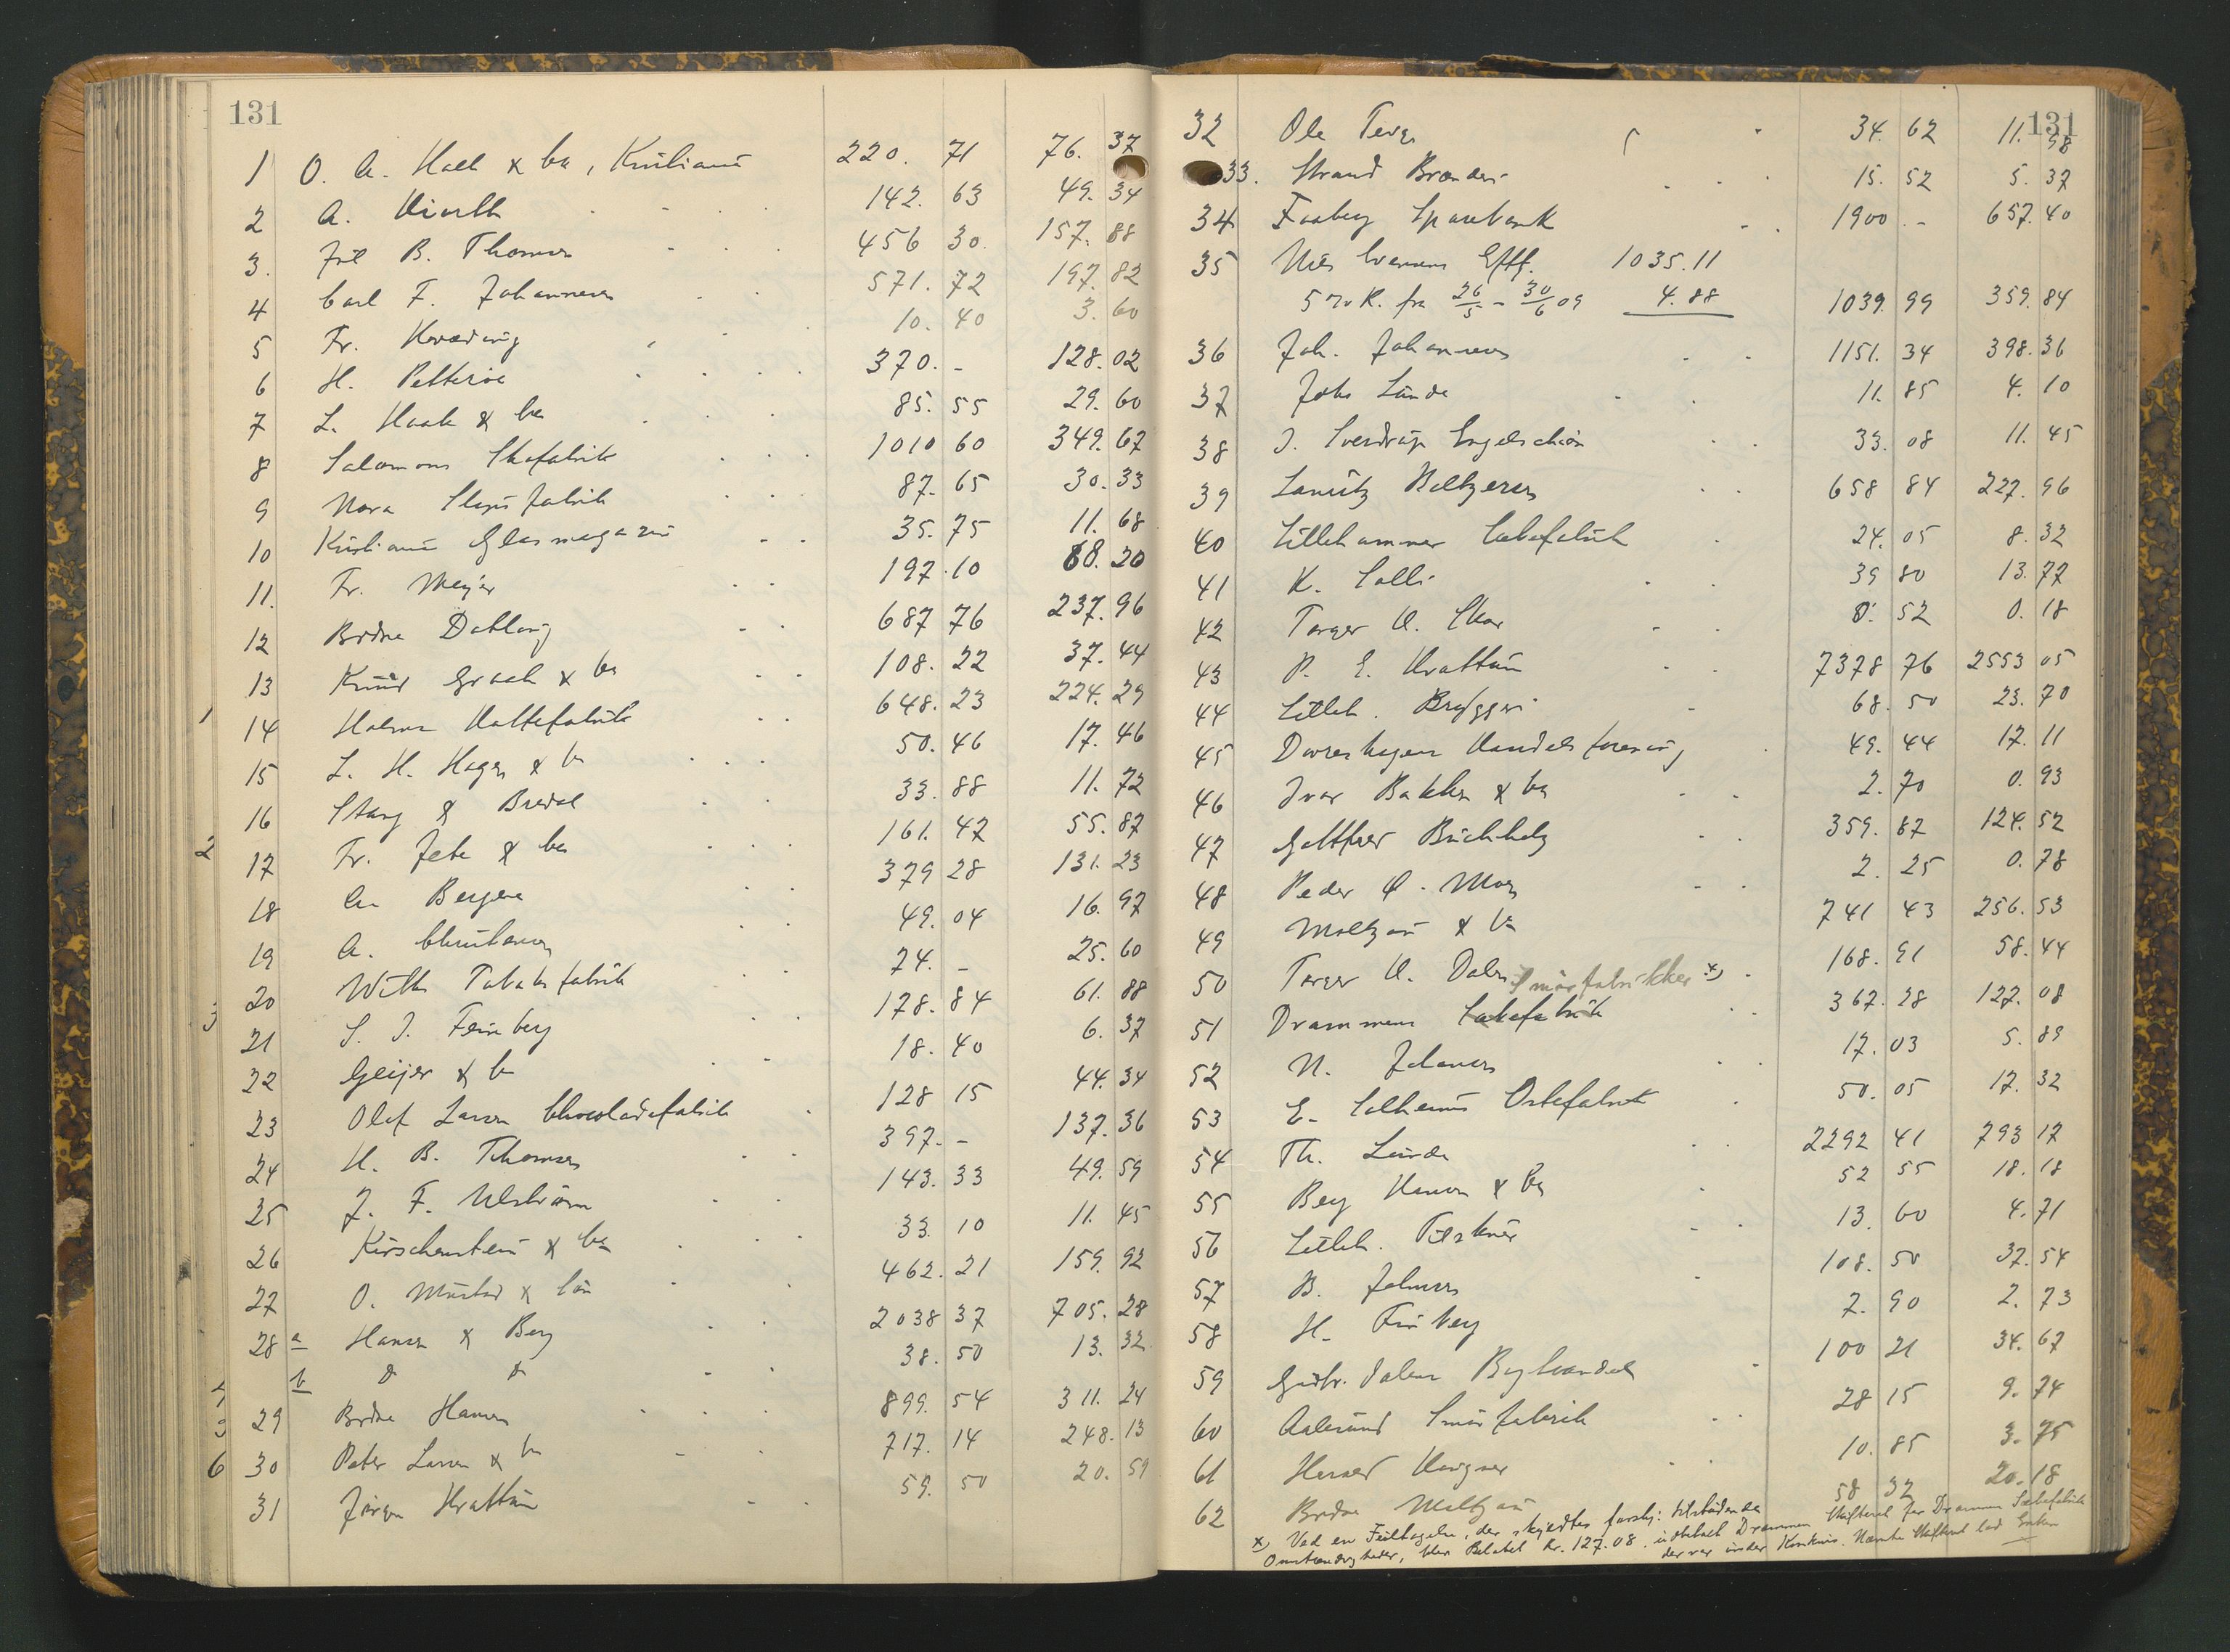 131
1 O. A. Holl & Co, Kristiania 220. 71 76. 37
2 A. Hiorth 142. 63 49. 34
3. Joh B. Thomsen 456 30. 157. 88
4 Carl F. Johannesen 571. 72 197. 82
5 Fr. 10. 40 3. 60
6 H. Petterøe 370. - 128. 02
7 L. Haak & Co 85. 55 29. 60
8 Salomons Skofabrik 1010 60 349. 67
9 Nora Slipsfabrik 87. 65 30. 33
10 Kristiania Glasmagasin 35. 75 11. 68
11. Fr. Meyer 197. 10 68. 20
12 Brdne Dobloug 687 76 237. 96
13 Knud Graah & Co 108. 22 37. 44
1 14 Holms Hattefabrik 648. 23 224. 29
15 L. H. Hagen & Co 50. 46 17. 46
16 Stang & Bredal 33. 88 11. 72
2 17 Fr. Zebe & Co 161. 47 55. 87
18 Bergene 379 28 131. 23
19 A. Christensen 49. 04 16. 97
20 Withs Tobaksfabrik 74. - 25. 60
3 21 S. J. Feinberg 178. 84 61. 88
22 Geijer & Co 18. 40 6. 37
23 Olaf Larsen Chocoladefabrik 128 15 44. 34
24 H. B. Thomsen 397. - 137. 36
25 J. F. Ulstrøm 143. 33 49. 59
26 Kirschenstein & Co 33. 10 11. 45
27 O. Mustad & Søn 462. 21 159. 92
28 a Hansen & Berg 2038 37 705. 28
b D D 38. 50 13. 32
29 Brdne Hansen 899. 54 311. 24
6 30 Peter Larsen & Co 717. 14 248. 13
31 Jørgen Hrattum 59. 50 20. 59
131
32 Ole Tever 34. 62 11. 98
33. Strand Brænderi 15. 52 5. 37
34 Faaberg Sparebank 1900. - 657. 40
35 Nils Evensens Eftf. 1035. 11
5 % R. fra 26/5 - 30/6 09 4. 88 1039. 99 359. 84
36 Joh. Johannesen 1151. 34 398. 36
37 Johs Lunde 11. 85 4. 10
38 J. Sverdrup Engelschiøn 33. 08 11. 45
39 Lauritz Holtzersen 658 84 227. 96
40 Lillehammer Sæbefabrik 24. 05 8. 32
41 K. Solli 39 80 13. 77
42 Torger O. Skar 0. 52 0. 18
43 P. E. Hrattum 7378 76 2553 05
44 Lilleh. Bryggeri 68. 50 23. 70
45 Dovreskogens Handelsforening 49. 44 17. 11
46 Ivar Bakken & Co 2. 70 0. 93
47 Gottfred Buchholz 359. 87 124. 52
48 Peder O. Moen 2. 25 0. 78
49 Moltzau & Co 741 43 256. 53
50 Torger O. Dalen 168. 91 58. 44
Smørfabrikker *)
51 Drammens Sæbefabrik 367. 28 127. 08
52 N. Johansen 17. 03 5. 89
53 E. Solhems Ostefabrik 50. 05 17. 32
54 Th. Lunde 2292 41 793 17
55 Berg Hansen & Co 52 55 18. 18
56 Lilleh. Filskur 13. 60 4. 71
57 B. Johnsen 108. 50 37. 54
58 H. Finberg 7. 90 2. 73
59 Gudbr. dalens Boghandel 100 21 34. 67
60 Aalesund Smørfabrik 28 15 9. 74
61 Herved Wagner 10. 85 3. 75
62 Brdne Moltzau 58 32 20. 18
*) Ved en Feiltagelse, der skyldtes forskj: tilstødende
Omstændigheder, blev Beløbet kr. 127.08. udbetalt Drammens Skifteret for Drammens Sæbefabrik
der var under Konkurs. Nævnte Skifteret lod